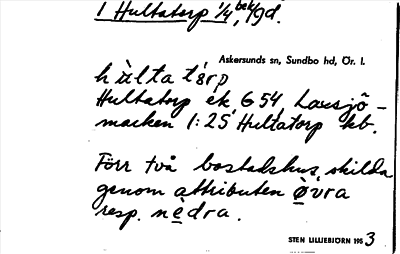 1 Hultatorp 1/4, bebygd.
Askersunds sn, Sundbo hd, Ör. l.
hùlta tárp
Hultatorp ek G 54, Lavsjö-
marken 1:25 Hultatorp kb.
Förr två bostadshus, skilda
genom attributen ø̀vra
resp. nèdra.
STEN LILLIEBJÖRN 1953